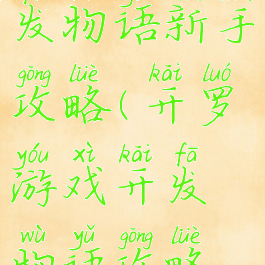 发物语新手
gōng lüè kāi luó
攻略(开罗
yóu xì kāi fā
游戏开发
wù yǔ gōng lüè
物语攻略